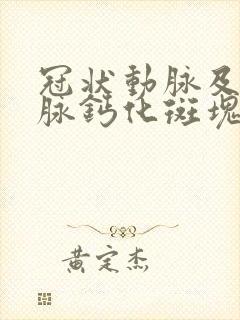 冠狀動脈及
脈鈣化斑塊
黃定杰